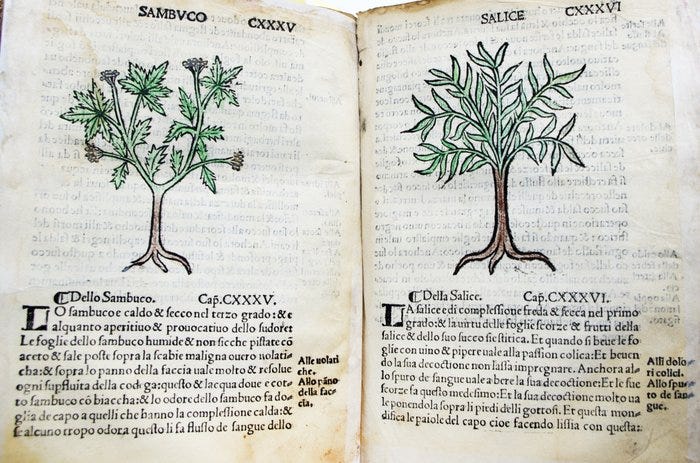 SAMBVCO CXXXV
¶ Dello Sambuco. Cap. CXXXV.
LO sambuco e caldo & secco nel terzo grado: & e
alquanto aperitiuo & prouocatiuo dello sudore:
Le foglie dello sambuco humide & non secche pistate cō
aceto & sale poste sopra la scabie maligna ouero uolati-
cha: & sopra lo panno della faccia uale molto & resolue
ogni supfluita della : questo & lacqua doue e cot-
to sambuco cō biaccha: & lo odore dello sambuco fa do-
glia de capo a quelli che hanno la complessione calda: &
se alcuno tropo odora questo li fa flusso de sangue dello
Alle uolati
che.
Allo pāno
della fac-
cia,
SALICE CXXXVI
¶ Della Salice. Cap. CXXXVI.
LA salice e di complessione freda & secca nel primo
grado: & la uirtu delle foglie scorze & frutti della
salice & dello suo succo sie stitica. Et quando si beue le fo
glie con uino & pipere uale a la passion colica: Et beuen
do la sua decoctione non lassa impregnare. Anchora al-
lo sputo de sangue uale a bere la sua decoctione: Et le sue
scorze fa questo medesimo: Et la sua decoctione molto ua
le ponendola sopra li piedi delli gottosi. Et questa mon-
difica le paiole del capo cioe facendo lissia con questa:
Alli dolo-
ri colici.
Allo spu-
to de san-
gue.